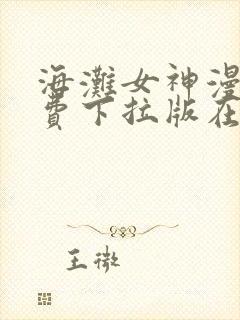 海灘女神漫
費下拉版在
王微